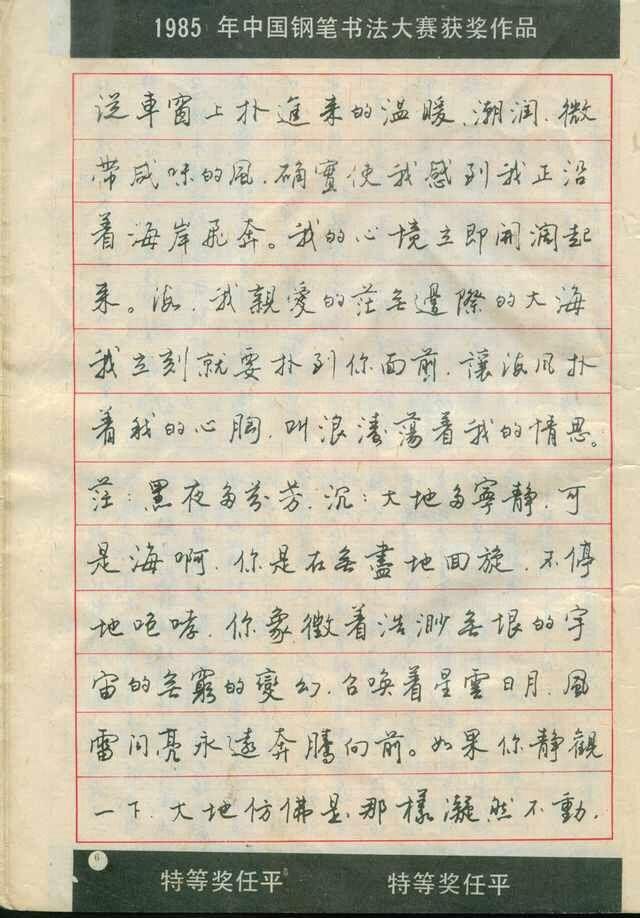 1985 年中国钢笔书法大赛获奖作品
从車窗上扑進来的温暖、潮润、微
带咸味的風,确實使我感到我正沿
着海岸飛奔。我的心境立即開濶起
来。海,我親愛的茫無邊際的大海
我立刻就要扑到你面前,讓海风扑
着我的心胸,叫浪濤蕩着我的情思。
茫:黑夜多芬芳,沉:大地多寧静,可
是海啊,你是在無盡地回旋,不停
地咆哮,你象徵着浩渺無垠的宇
宙的無窮的變幻,召唤着星雲日月,風
雷闪亮永遠奔騰向前。如果你静觀
一下,大地仿佛是那樣凝然不動,
6
特等奖任平 特等奖任平